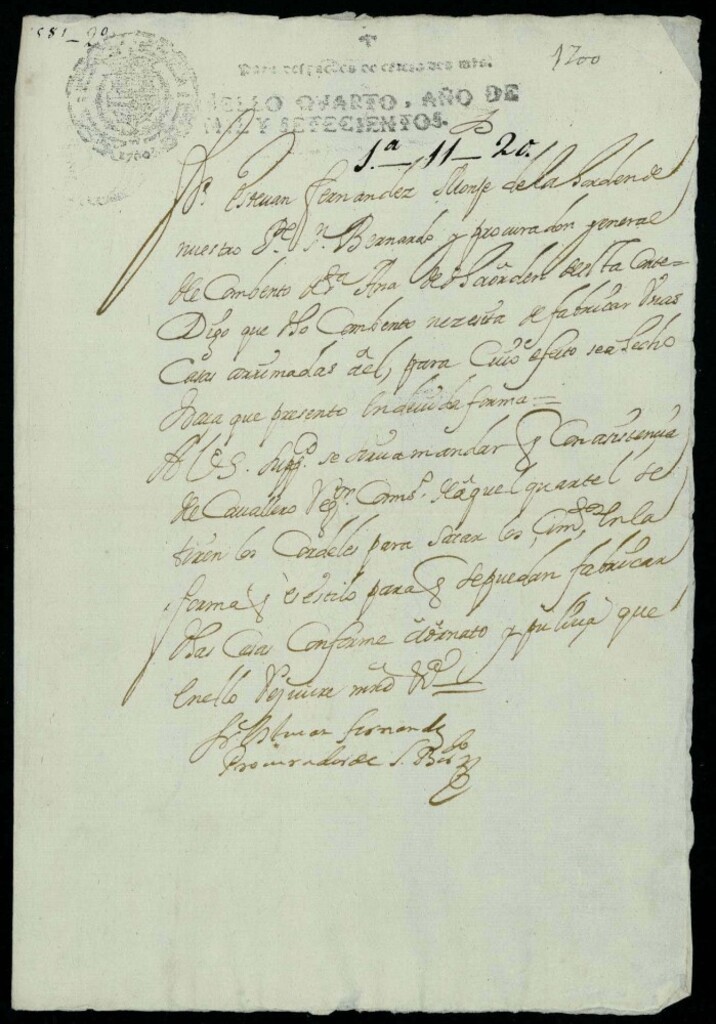 1-81-20
1700
Para despachos de oficio dos mrs.
SELLO QVARTO, AÑO DE
MIL Y SETECIENTOS.
1700
1.ª—11—20.
Fr. Esteuan Fernandez Monje de la horden de
nuestro Pe. Sn. Bernardo y procurador general
del Combento de Sta. Ana de dha. orden desta Corte =
Digo que dho Combento nezesita de fabricar Unas
Casas arrimadas a el, para Cuio efecto se a hecho
traza que presento en deuida forma =
A V.S. Suppco. se sirua mandar q Con asistencia
de Cauallero Regor. Comso. de aquel quartel se
tiren los Cordeles para sacar los Cimtos. en la
forma q es estilo para q se puedan fabricar
dhas Casas Conforme a ornato y puliçia que
en ello Rejuire mrd. &a.
Fr. Esteuan Fernandez
Procurador de S. Berdo.